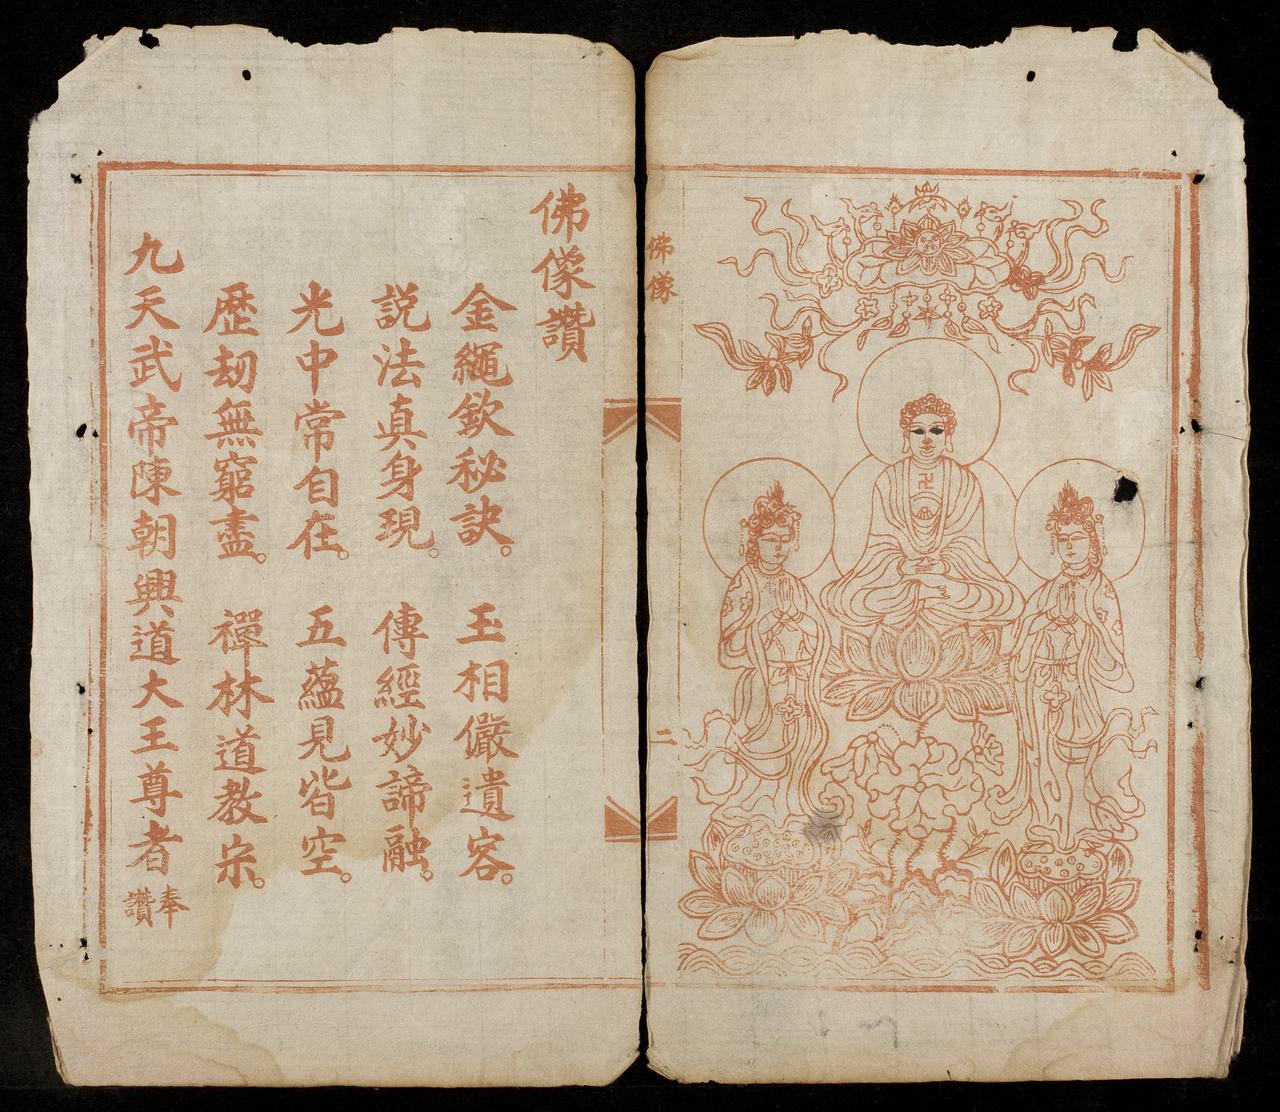 佛像
二
佛像讚
金繩欽秘訣。玉相儼遺容。
説法真身現。傳經妙諦融。
光中常自在。五蘊見皆空。
歷刼無窮盡。禪林道教宗。
九天武帝陳朝興道大王尊者奉讚